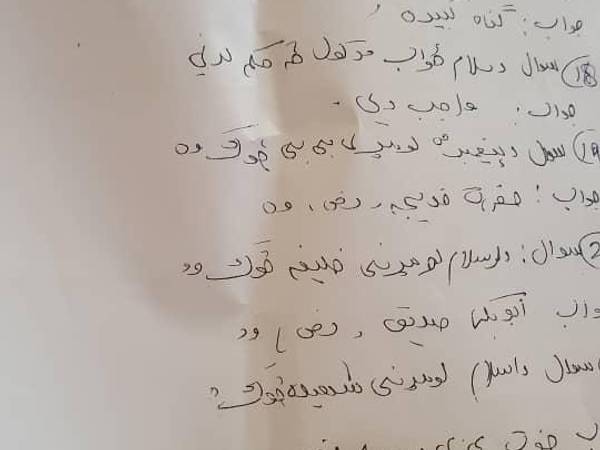 جواب: گناه کبیره
(18) سوال د سلام ځواب ورکول څه حکم لري
جواب: واجب دی.
(19) سوال د پیغمبر ص لومړۍ بي بي څوک وه
جواب: حضرت خدیجه رض، وه
سوال: د اسلام لومړنی خلیفه څوک وو
واب ابوبکر صدیق (رض) وو
سوال د اسلام لومړنی شهیده څوک؟